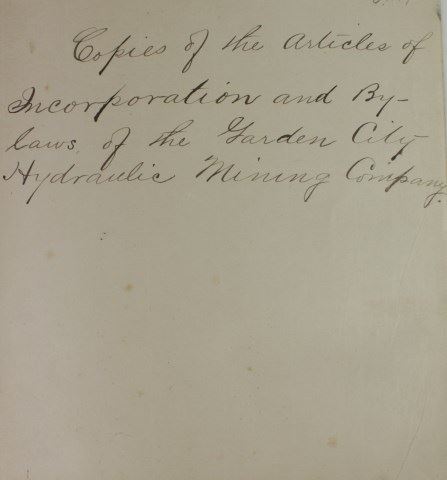 Copies of the Articles of
Incorporation and By-
laws, of the Garden City
Hydraulic Mining Company.